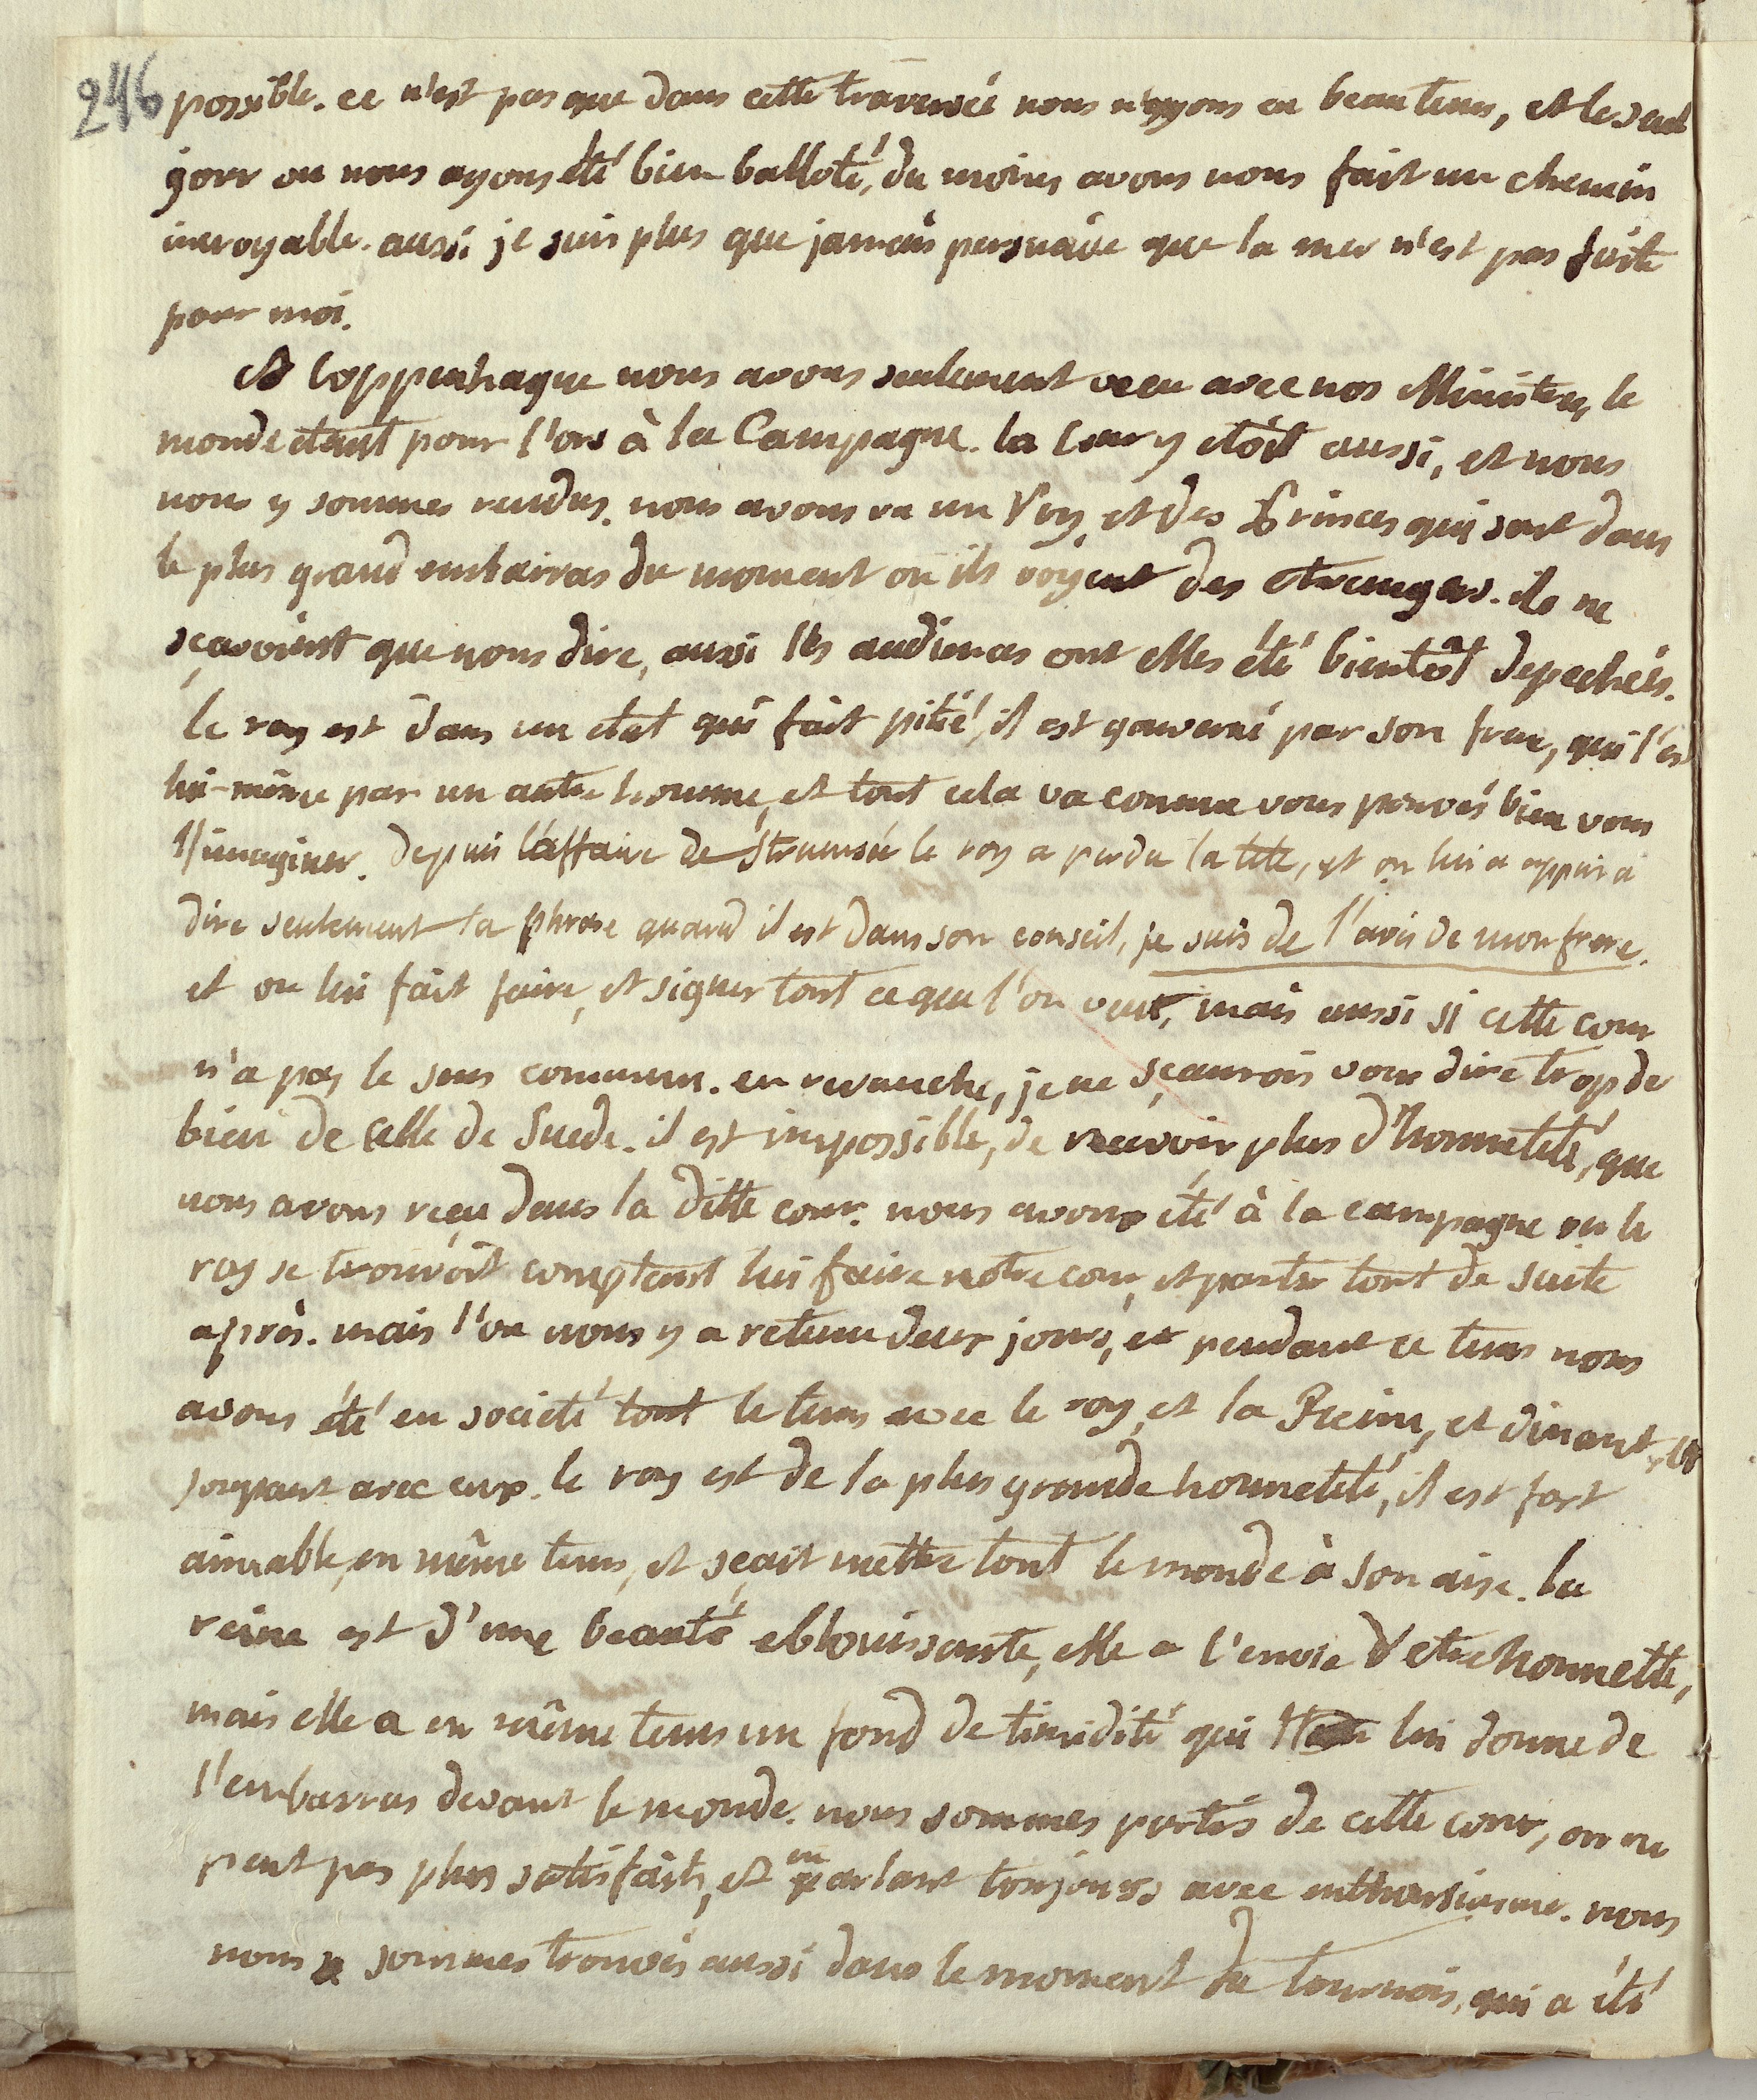 246
possible. ce n'est pas que dans cette traversée nous n'ayons eu beau tems, et le seul
jour ou nous ayons été bien balloté, du moins avons nous fait un chemin
incroyable. aussi je suis plus que jamais persuadé que la mer n'est pas faite
pour moi.
A Coppenhague nous avons seulement vecu avec nos Ministres, le
monde etant pour l'ors à la Campagne. la Cour y etoit aussi, et nous
nous y sommes rendus. nous avons vu un Roy, et des Princes qui sont dans
le plus grand embarras du moment ou ils voyent des etrangers. ils ne
sçavoient que nous dire, aussi les audiences ont elles été bientôt depechés.
le roy est dans un etat qui fait pitié, il est gouverné par son frere, qui l'est
lui-même par un autre homme, et tout cela va comme vous pouvés bien vous
l'imaginer. depuis l'affaire de Struensée le roy a perdu la tete, et on lui a appris a
dire seulement la phrase quand il est dans son conseil, je suis de l'avis de mon frere.
et on lui fait faire, et signer tout ce que l'on veut, mais aussi si cette cour
n'a pas le sens commun. en revanche, je ne sçaurois vous dire trop de
bien de celle de Suede. il est impossible, de recevoir plus d'honneteté, que
nous avons reçu dans la ditte cour. nous avons été à la campagne ou le
roy se trouvoit comptant lui faire notre cour, et partir tout de suite
après. mais l'on nous y a retenu deux jours, et pendant ce tems nous
avons été en societé tout le tems avec le roy, et la Reine, et dinant, et
soupant avec eux. le roy est de la plus grande honneteté, il est fort
aimable, en même tems, et sçait mettre tout le monde à son aise. la
reine est d'une beauté eblouissante, elle a l'envie d'etre honnette,
mais elle a en même tems un fond de timidité qui lui donne de
l'embarras devant le monde. nous sommes partis de cette cour, on ne
peut pas plus satisfaits, et en parlant toujours avec enthousiasme. nous
nous sommes trouvés aussi dans le moment du tournois, qui a été